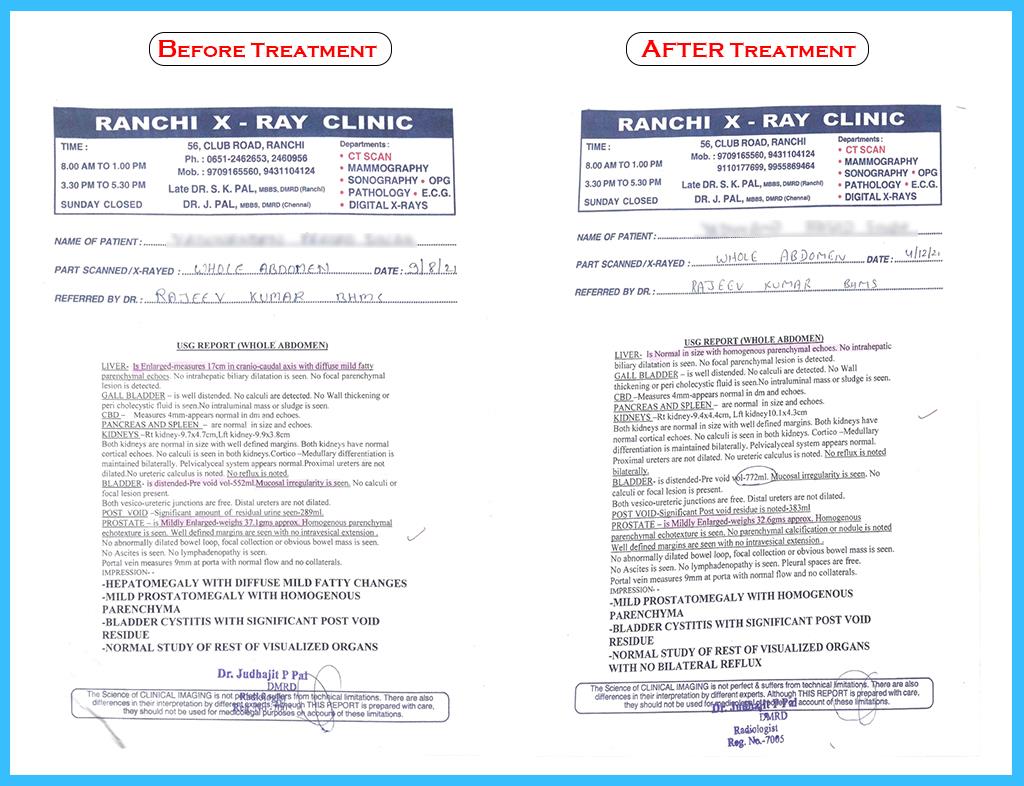 BEFORE TREATMENT
RANCHI X - RAY CLINIC
TIME :
8.00 AM TO 1.00 PM
3.30 PM TO 5.30 PM
SUNDAY CLOSED
56, CLUB ROAD, RANCHI
Ph. : 0651-2462653, 2460956
Mob. : 9709165560, 9431104124
Late DR. S. K. PAL, MBBS, DMRD (Ranchi)
DR. J. PAL, MBBS, DMRD (Chennai)
Departments :
• CT SCAN
• MAMMOGRAPHY
• SONOGRAPHY • OPG
• PATHOLOGY • E.C.G.
• DIGITAL X-RAYS
NAME OF PATIENT :
PART SCANNED/X-RAYED : WHOLE ABDOMEN DATE : 9/8/21
REFERRED BY DR. : RAJEEV KUMAR BHMS
USG REPORT (WHOLE ABDOMEN)
LIVER- Is Enlarged-measures 17cm in cranio-caudal axis with diffuse mild fatty
parenchymal echoes. No intrahepatic biliary dilatation is seen. No focal parenchymal
lesion is detected.
GALL BLADDER – is well distended. No calculi are detected. No Wall thickening or
peri cholecystic fluid is seen.No intraluminal mass or sludge is seen.
CBD – Measures 4mm-appears normal in dm and echoes.
PANCREAS AND SPLEEN – are normal in size and echoes.
KIDNEYS –Rt kidney-9.7x4.7cm,Lft kidney-9.9x3.8cm
Both kidneys are normal in size with well defined margins. Both kidneys have normal
cortical echoes. No calculi is seen in both kidneys.Cortico –Medullary differentiation is
maintained bilaterally. Pelvicalyceal system appears normal.Proximal ureters are not
dilated.No ureteric calculus is noted. No reflux is noted.
BLADDER- is distended-Pre void vol-552ml.Mucosal irregularity is seen. No calculi or
focal lesion present.
Both vesico-ureteric junctions are free. Distal ureters are not dilated.
POST VOID –Significant amount of residual urine seen-289ml.
PROSTATE – is Mildly Enlarged-weighs 37.1gms approx. Homogenous parenchymal
echotexture is seen. Well defined margins are seen with no intravesical extension .
No abnormally dilated bowel loop, focal collection or obvious bowel mass is seen.
No Ascites is seen. No lymphadenopathy is seen.
Portal vein measures 9mm at porta with normal flow and no collaterals.
IMPRESSION- -
-HEPATOMEGALY WITH DIFFUSE MILD FATTY CHANGES
-MILD PROSTATOMEGALY WITH HOMOGENOUS
PARENCHYMA
-BLADDER CYSTITIS WITH SIGNIFICANT POST VOID
RESIDUE
-NORMAL STUDY OF REST OF VISUALIZED ORGANS
Dr. Judhajit P Pal
DMRD
Radiologist
The Science of CLINICAL IMAGING is not perfect & suffers from technical limitations. There are also
differences in their interpretation by different experts. Although THIS REPORT is prepared with care,
they should not be used for medicolegal purposes on account of these limitations.
AFTER TREATMENT
RANCHI X - RAY CLINIC
TIME :
8.00 AM TO 1.00 PM
3.30 PM TO 5.30 PM
SUNDAY CLOSED
56, CLUB ROAD, RANCHI
Mob. : 9709165560, 9431104124
9110177699, 9955869464
Late DR. S. K. PAL, MBBS, DMRD (Ranchi)
DR. J. PAL, MBBS, DMRD (Chennai)
Departments :
• CT SCAN
• MAMMOGRAPHY
• SONOGRAPHY • OPG
• PATHOLOGY • E.C.G.
• DIGITAL X-RAYS
NAME OF PATIENT :
PART SCANNED/X-RAYED : WHOLE ABDOMEN DATE : 4/12/21
REFERRED BY DR. : RAJEEV KUMAR BHMS
USG REPORT (WHOLE ABDOMEN)
LIVER- Is Normal in size with homogenous parenchymal echoes. No intrahepatic
biliary dilatation is seen. No focal parenchymal lesion is detected.
GALL BLADDER – is well distended. No calculi are detected. No Wall
thickening or peri cholecystic fluid is seen.No intraluminal mass or sludge is seen.
CBD –Measures 4mm-appears normal in dm and echoes.
PANCREAS AND SPLEEN – are normal in size and echoes.
KIDNEYS-Rt kidney-9.4x4.4cm, Lft kidney10.1x4.3cm
Both kidneys are normal in size with well defined margins. Both kidneys have
normal cortical echoes. No calculi is seen in both kidneys. Cortico –Medullary
differentiation is maintained bilaterally. Pelvicalyceal system appears normal.
Proximal ureters are not dilated. No ureteric calculus is noted. No reflux is noted
bilaterally.
BLADDER- is distended-Pre void vol-772ml. Mucosal irregularity is seen. No
calculi or focal lesion is present.
Both vesico-ureteric junctions are free. Distal ureters are not dilated.
POST VOID-Significant Post void residue is noted-383ml
PROSTATE – is Mildly Enlarged-weighs 32.6gms approx. Homogenous
parenchymal echotexture is seen. No parenchymal calcification or nodule is noted
Well defined margins are seen with no intravesical extension .
No abnormally dilated bowel loop, focal collection or obvious bowel mass is seen.
No Ascites is seen. No lymphadenopathy is seen. Pleural spaces are free.
Portal vein measures 9mm at porta with normal flow and no collaterals.
IMPRESSION- -
-MILD PROSTATOMEGALY WITH HOMOGENOUS
PARENCHYMA
-BLADDER CYSTITIS WITH SIGNIFICANT POST VOID
RESIDUE
-NORMAL STUDY OF REST OF VISUALIZED ORGANS
WITH NO BILATERAL REFLUX
The Science of CLINICAL IMAGING is not perfect & suffers from technical limitations. There are also
differences in their interpretation by different experts. Although THIS REPORT is prepared with care,
they should not be used for medicolegal purposes on account of these limitations.
Dr. Judhajit P Pal
DMRD
Radiologist
Reg. No.-7005